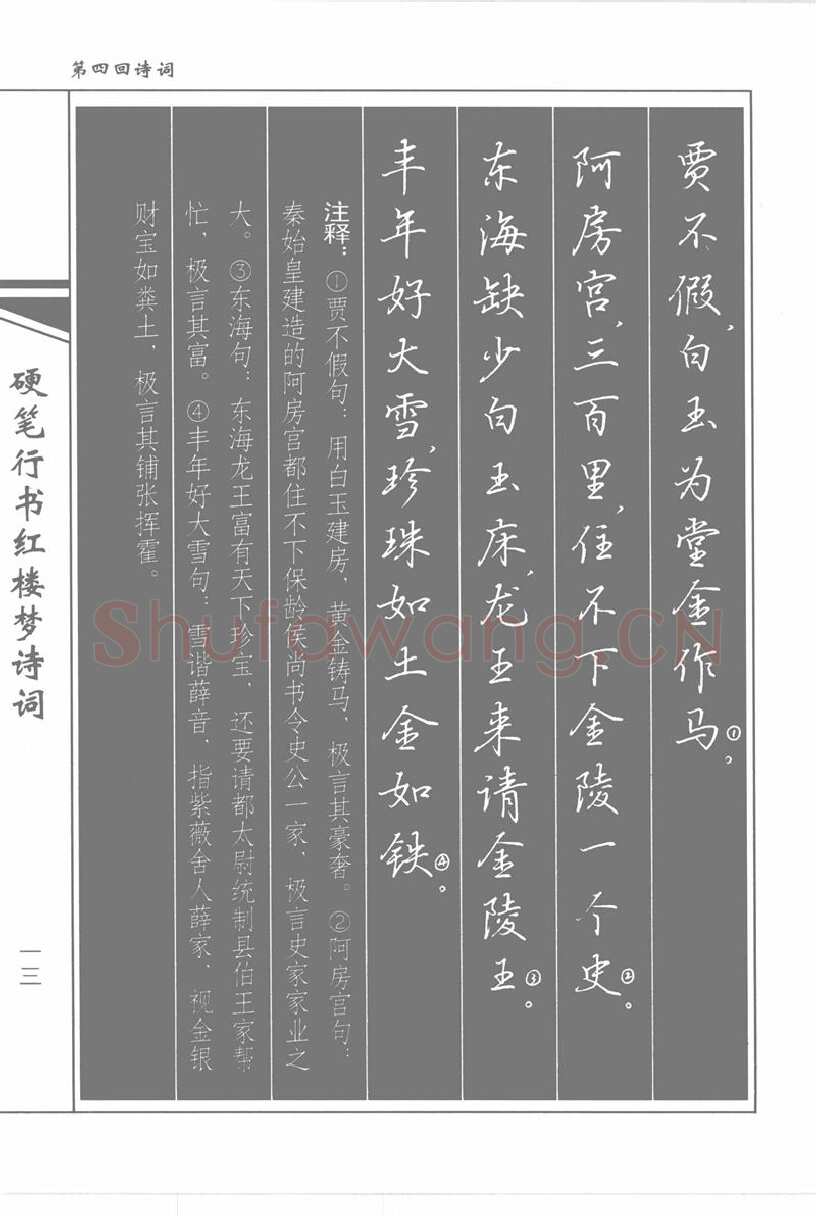 第四回诗词
贾不假，白玉为堂金作马①。
阿房宫，三百里，住不下金陵一个史②。
东海缺少白玉床，龙王来请金陵王③。
丰年好大雪，珍珠如土金如铁④。
注释：①贾不假句：用白玉建房，黄金铸马，极言其豪奢。②阿房宫句：
秦始皇建造的阿房宫都住不下保龄侯尚书令史公一家，极言史家家业之
大。③东海句：东海龙王富有天下珍宝，还要请都太尉统制县伯王家帮
忙，极言其富。④丰年好大雪句：雪谐薛音，指紫薇舍人薛家，视金银
财宝如粪土，极言其铺张挥霍。
硬笔行书红楼梦诗词
一三
Shufawang.CN